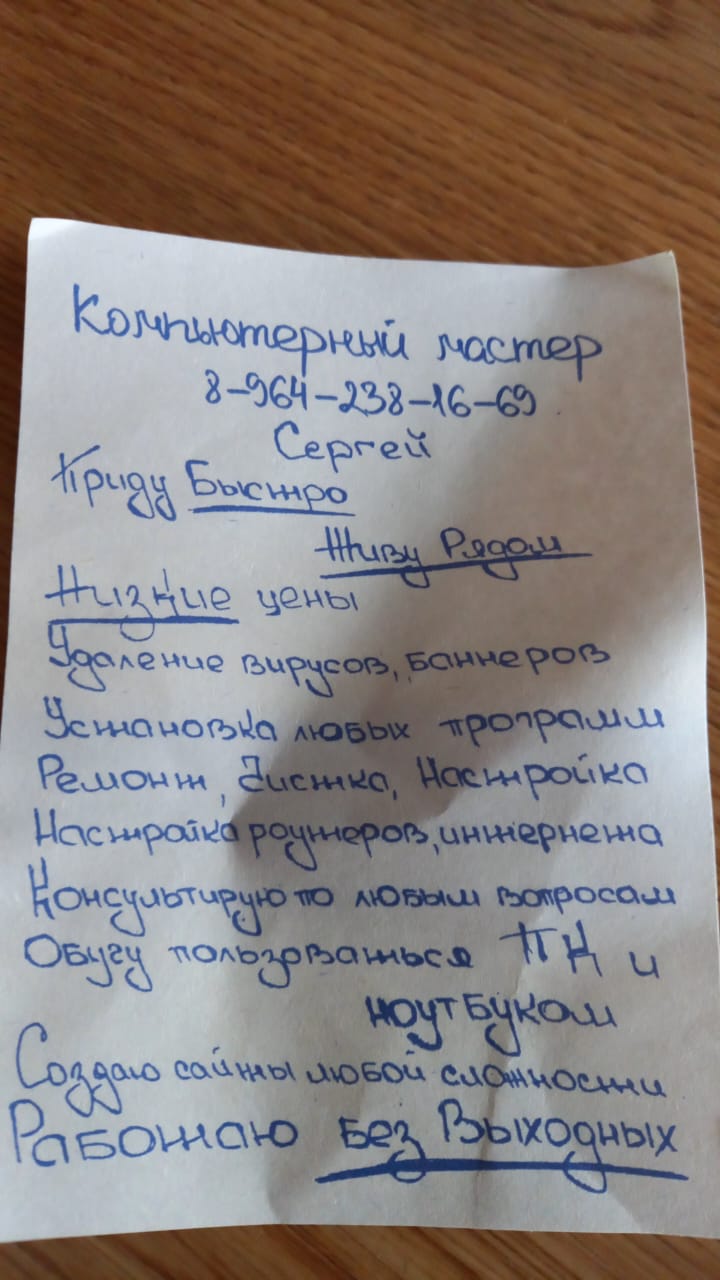 Компьютерный мастер
8-964-238-16-69
Сергей
Приду Быстро
Живу Рядом
Низкие цены
Удаление вирусов, баннеров
Установка любых программ
Ремонт, Чистка, Настройка
Настройка роутеров, интернета
Консультирую по любым вопросам
Обучу пользоваться ПК и
ноутбуком
Создаю сайты любой сложности
Работаю Без Выходных